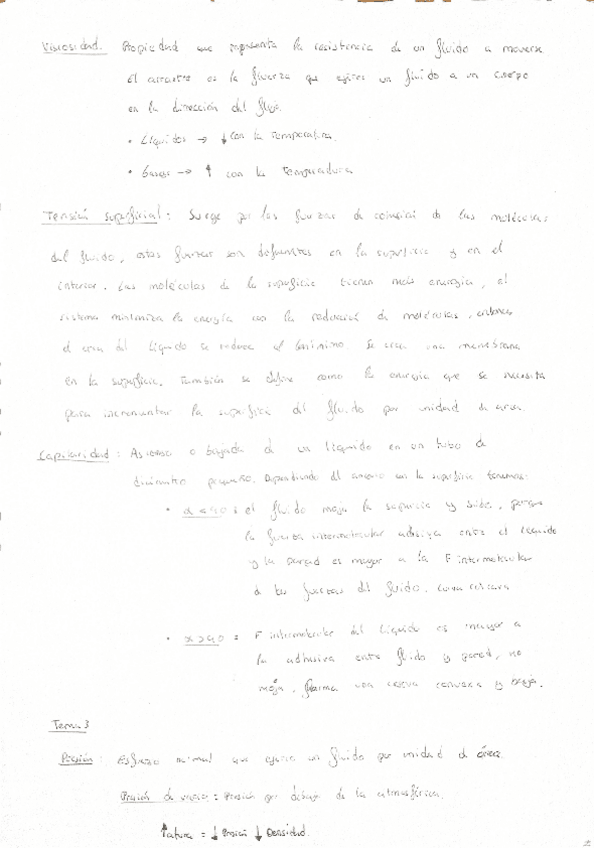 Viscosidad. Propiedad que representa la resistencia de un fluido a moverse
el arrastre es la fuerza que ejerce un fluido a un cuerpo
en la dirección del flujo.
• Líquidos → ↓ con la temperatura
• Gases → ↑ con la temperatura
Tensión superficial: Surge por las fuerzas de cohesión de las moléculas
del fluido, estas fuerzas son diferentes en la superficie y en el
interior. Las moléculas de la superficie tienen más energía, el
sistema minimiza la energía con la reducción de moléculas, entonces
el area del líquido se reduce al mínimo. Se crea una membrana
en la superficie. También se define como la energía que se necesita
para incrementar la superficie del fluido por unidad de area.
Capilaridad: Ascenso o bajada de un líquido en un tubo de
diámetro pequeño. Dependiendo del con la superficie tenemos:
• α<90: el fluido moja la superficie y sube, porque
la fuerza intermolecular adhesiva entre el líquido
y la pared es mayor a la F intermolecular
de las fuerzas del fluido.
• α>90: F intermolecular del líquido es mayor a
la adhesiva entre fluido y pared, no
moja, forma una convexa y baja.
Tema 3
Presión: Esfuerzo normal que ejerce un fluido por unidad de área.
Presión de : Presión por debajo de la atmosférica.
↑altura = ↓Presión ↓Densidad.